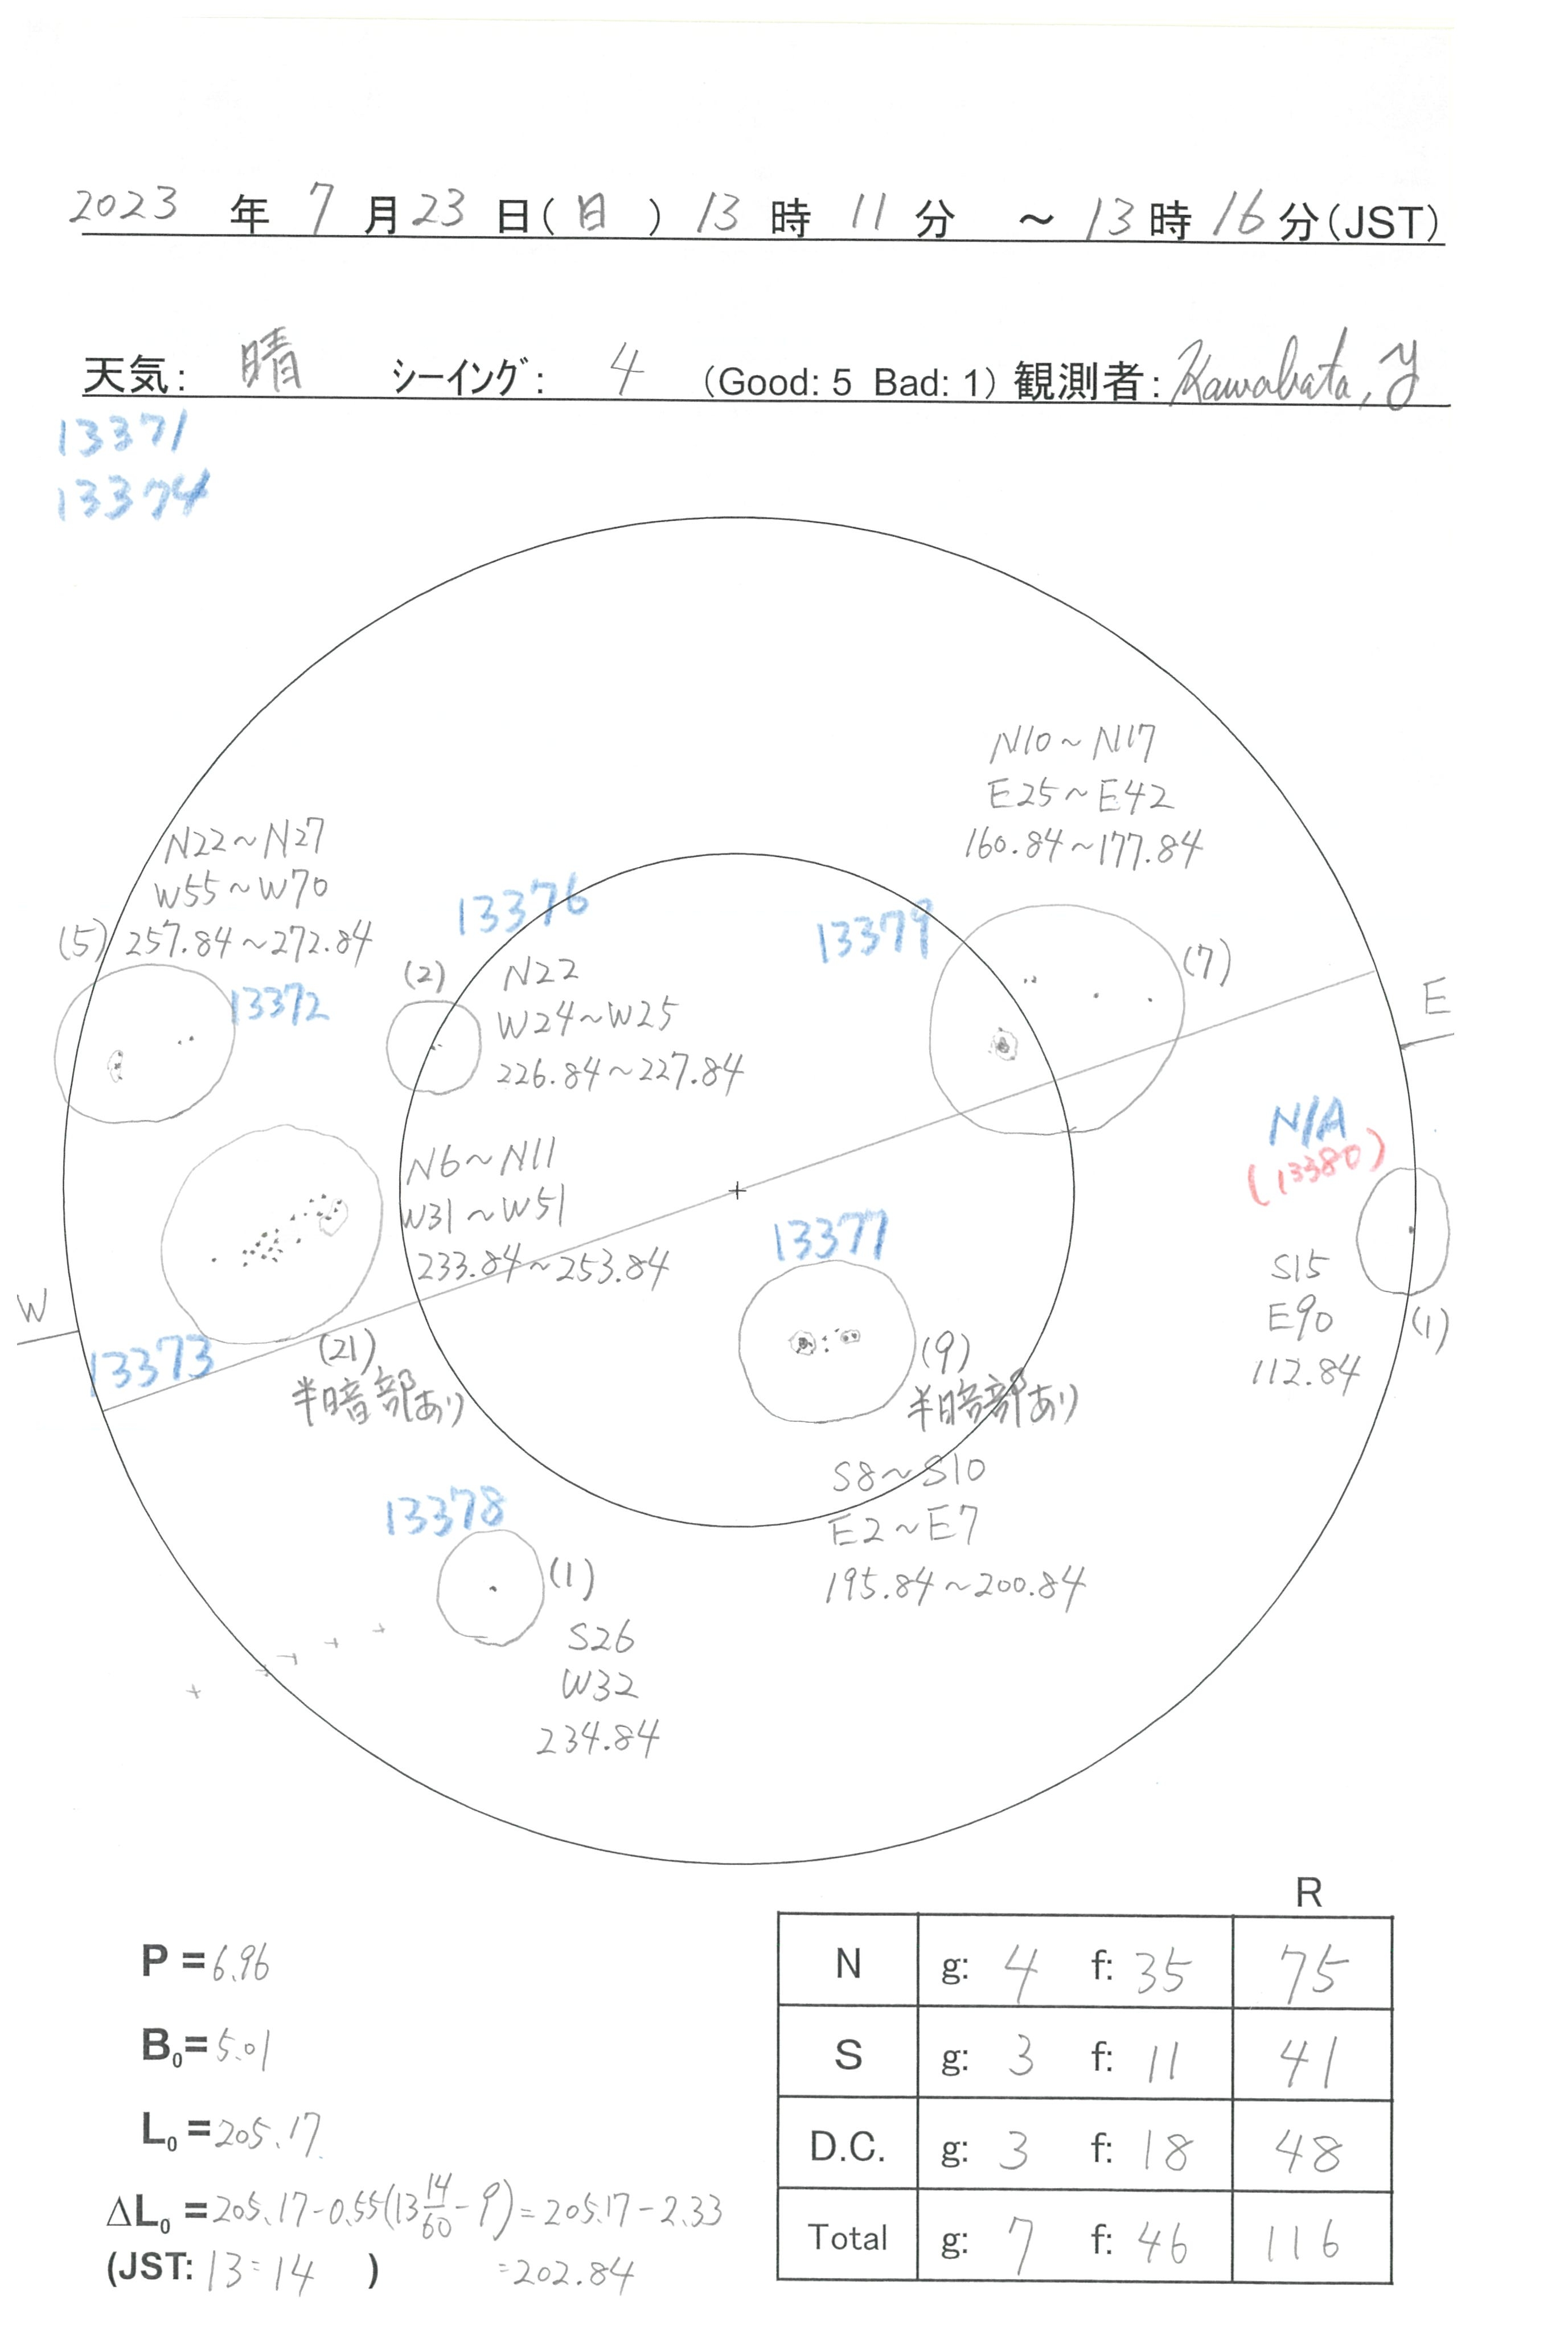 2023 年 7 月 23 日(日) 13 時 11 分 ～ 13 時 16 分(JST)
天気: 晴 シーイング: 4 (Good: 5 Bad: 1) 観測者: Kawabata, Y
13371
13374
N10～N17
E25～E42
160.84～177.84
(7)
13379
N22～N27
W55～W70
(5) 257.84～272.84
13372
13376
(2)
N22
W24～W25
226.84～227.84
E
N/A
(13380)
S15
E90
112.84
(1)
N6～N11
W31～W51
233.84～253.84
W
13373
(21)
半暗部あり
13377
(9)
半暗部あり
S8～S10
E2～E7
195.84～200.84
13378
(1)
S26
W32
234.84
P = 6.96
B₀ = 5.01
L₀ = 205.17
ΔL₀ = 205.17 - 0.55(13 14/60 - 9) = 205.17 - 2.33
(JST: 13:14 ) = 202.84
R
N g: 4 f: 35 75
S g: 3 f: 11 41
D.C. g: 3 f: 18 48
Total g: 7 f: 46 116